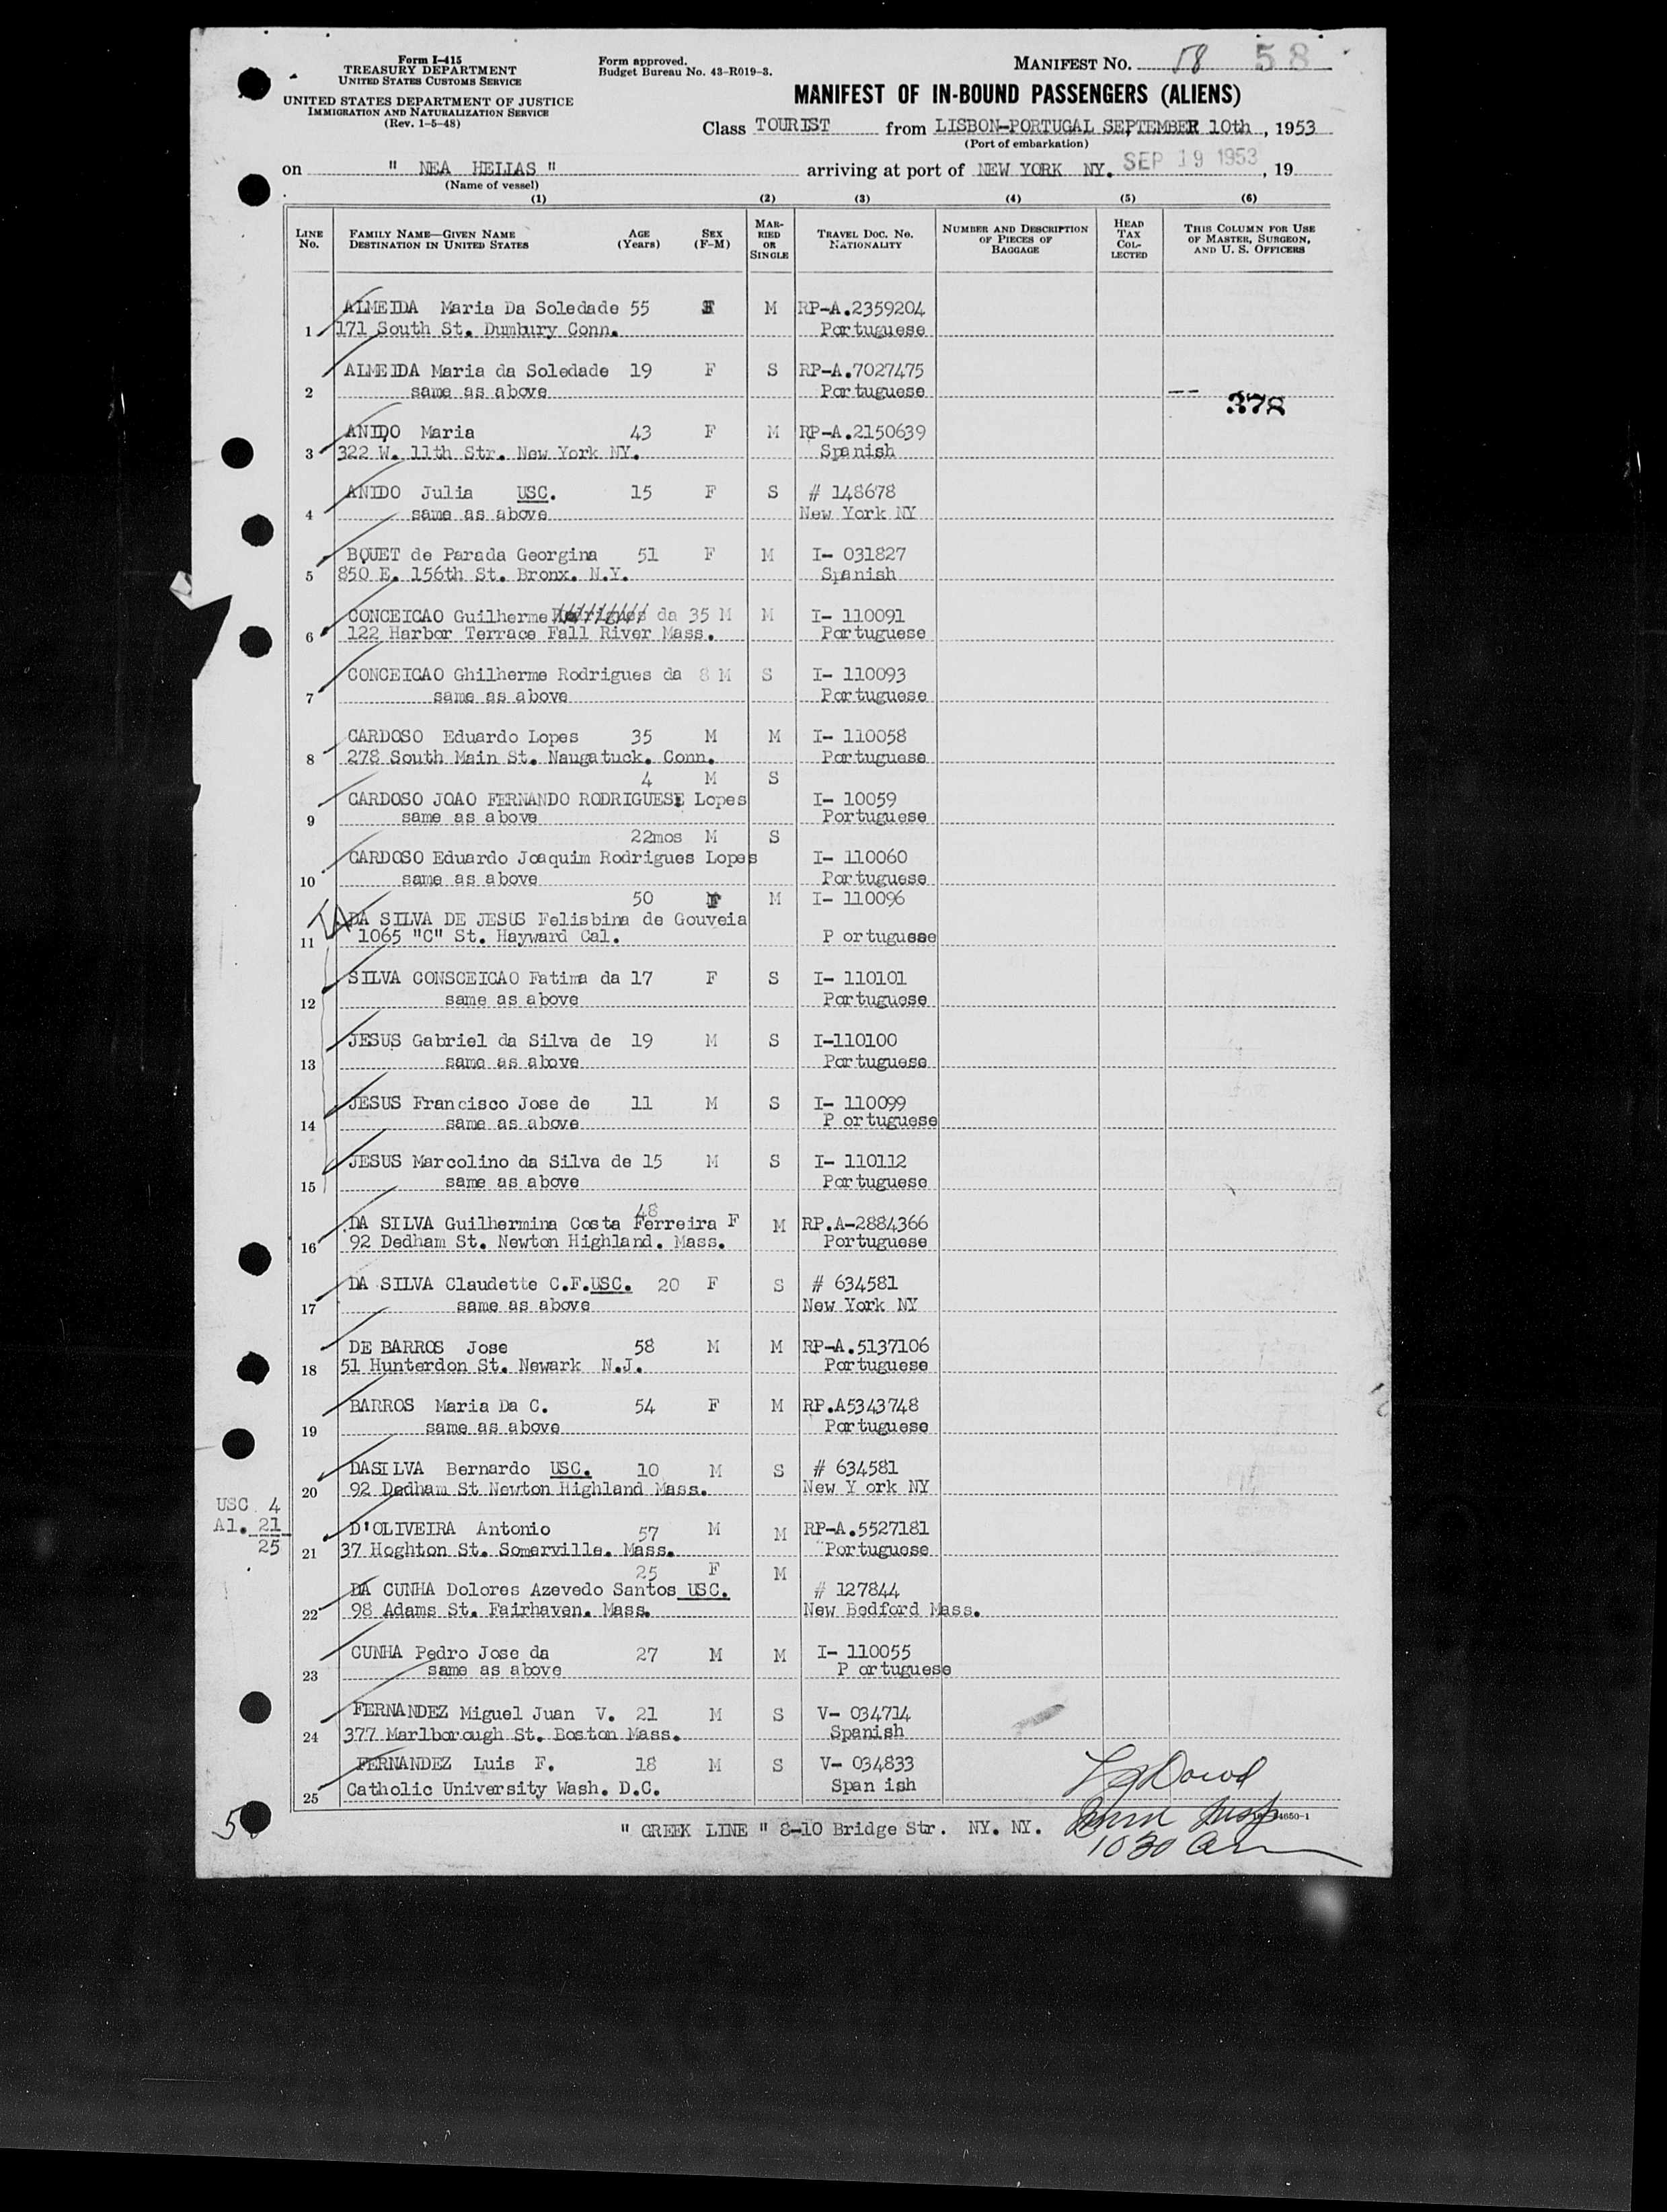 Form I-415
TREASURY DEPARTMENT
UNITED STATES CUSTOMS SERVICE
UNITED STATES DEPARTMENT OF JUSTICE
IMMIGRATION AND NATURALIZATION SERVICE
(Rev. 1-5-48)
Form approved.
Budget Bureau No. 43-R019-3.
MANIFEST NO. 58 58
MANIFEST OF IN-BOUND PASSENGERS (ALIENS)
Class TOURIST from LISBON-PORTUGAL SEPTEMBER 10th, 1953
(Port of embarkation)
on " NEA HELLAS " arriving at port of NEW YORK NY. SEP 19 1953, 19
(Name of vessel)
(1) (2) (3) (4) (5) (6)
LINE No. FAMILY NAME—GIVEN NAME DESTINATION IN UNITED STATES AGE (Years) SEX (F-M) MARRIED OR SINGLE TRAVEL DOC. NO. NATIONALITY NUMBER AND DESCRIPTION OF PIECES OF BAGGAGE HEAD TAX COLLECTED THIS COLUMN FOR USE OF MASTER, SURGEON, AND U. S. OFFICERS
ALMEIDA Maria Da Soledade 55 F M RP-A.2359204
1 171 South St. Dumbury Conn. Portuguese
ALMEIDA Maria da Soledade 19 F S RP-A.7027475
2 same as above Portuguese -- 378
ANIDO Maria 43 F M RP-A.2150639
3 322 W. 11th Str. New York NY. Spanish
ANIDO Julia USC. 15 F S # 148678
4 same as above New York NY
BQUET de Parada Georgina 51 F M I- 031827
5 850 E. 156th St. Bronx. N.Y. Spanish
CONCEICAO Guilherme Rodrigues da 35 M M I- 110091
6 122 Harbor Terrace Fall River Mass. Portuguese
CONCEICAO Ghilherme Rodrigues da 8 M S I- 110093
7 same as above Portuguese
CARDOSO Eduardo Lopes 35 M M I- 110058
8 278 South Main St. Naugatuck. Conn. Portuguese
4 M S
CARDOSO JOAO FERNANDO RODRIGUESE Lopes I- 10059
9 same as above Portuguese
22mos M S
CARDOSO Eduardo Joaquim Rodrigues Lopes I- 110060
10 same as above Portuguese
50 F M I- 110096
DA SILVA DE JESUS Felisbina de Gouveia
11 1065 "C" St. Hayward Cal. P ortuguese
SILVA CONSCEICAO Fatima da 17 F S I- 110101
12 same as above Portuguese
JESUS Gabriel da Silva de 19 M S I-110100
13 same as above Portuguese
JESUS Francisco Jose de 11 M S I- 110099
14 same as above P ortuguese
JESUS Marcolino da Silva de 15 M S I- 110112
15 same as above Portuguese
48
DA SILVA Guilhermina Costa Ferreira F M RP.A-2884366
16 92 Dedham St. Newton Highland. Mass. Portuguese
DA SILVA Claudette C.F.USC. 20 F S # 634581
17 same as above New York NY
DE BARROS Jose 58 M M RP-A.5137106
18 51 Hunterdon St. Newark N.J. Portuguese
BARROS Maria Da C. 54 F M RP.A5343748
19 same as above Portuguese
DASILVA Bernardo USC. 10 M S # 634581
20 92 Dedham St Newton Highland Mass. New Y ork NY
USC 4
Al. 21
25
D'OLIVEIRA Antonio 57 M M RP-A.5527181
21 37 Hoghton St. Somerville. Mass. Portuguese
25 F M
DA CUNHA Dolores Azevedo Santos USC. # 127844
22 98 Adams St. Fairhaven. Mass. New Bedford Mass.
CUNHA Pedro Jose da 27 M M I- 110055
23 same as above P ortuguese
FERNANDEZ Miguel Juan V. 21 M S V- 034714
24 377 Marlborough St. Boston Mass. Spanish
FERNANDEZ Luis F. 18 M S V- 034833
25 Catholic University Wash. D.C. Span ish
" GREEK LINE " 8-10 Bridge Str. NY. NY.
Dowd
Insp
1030 am